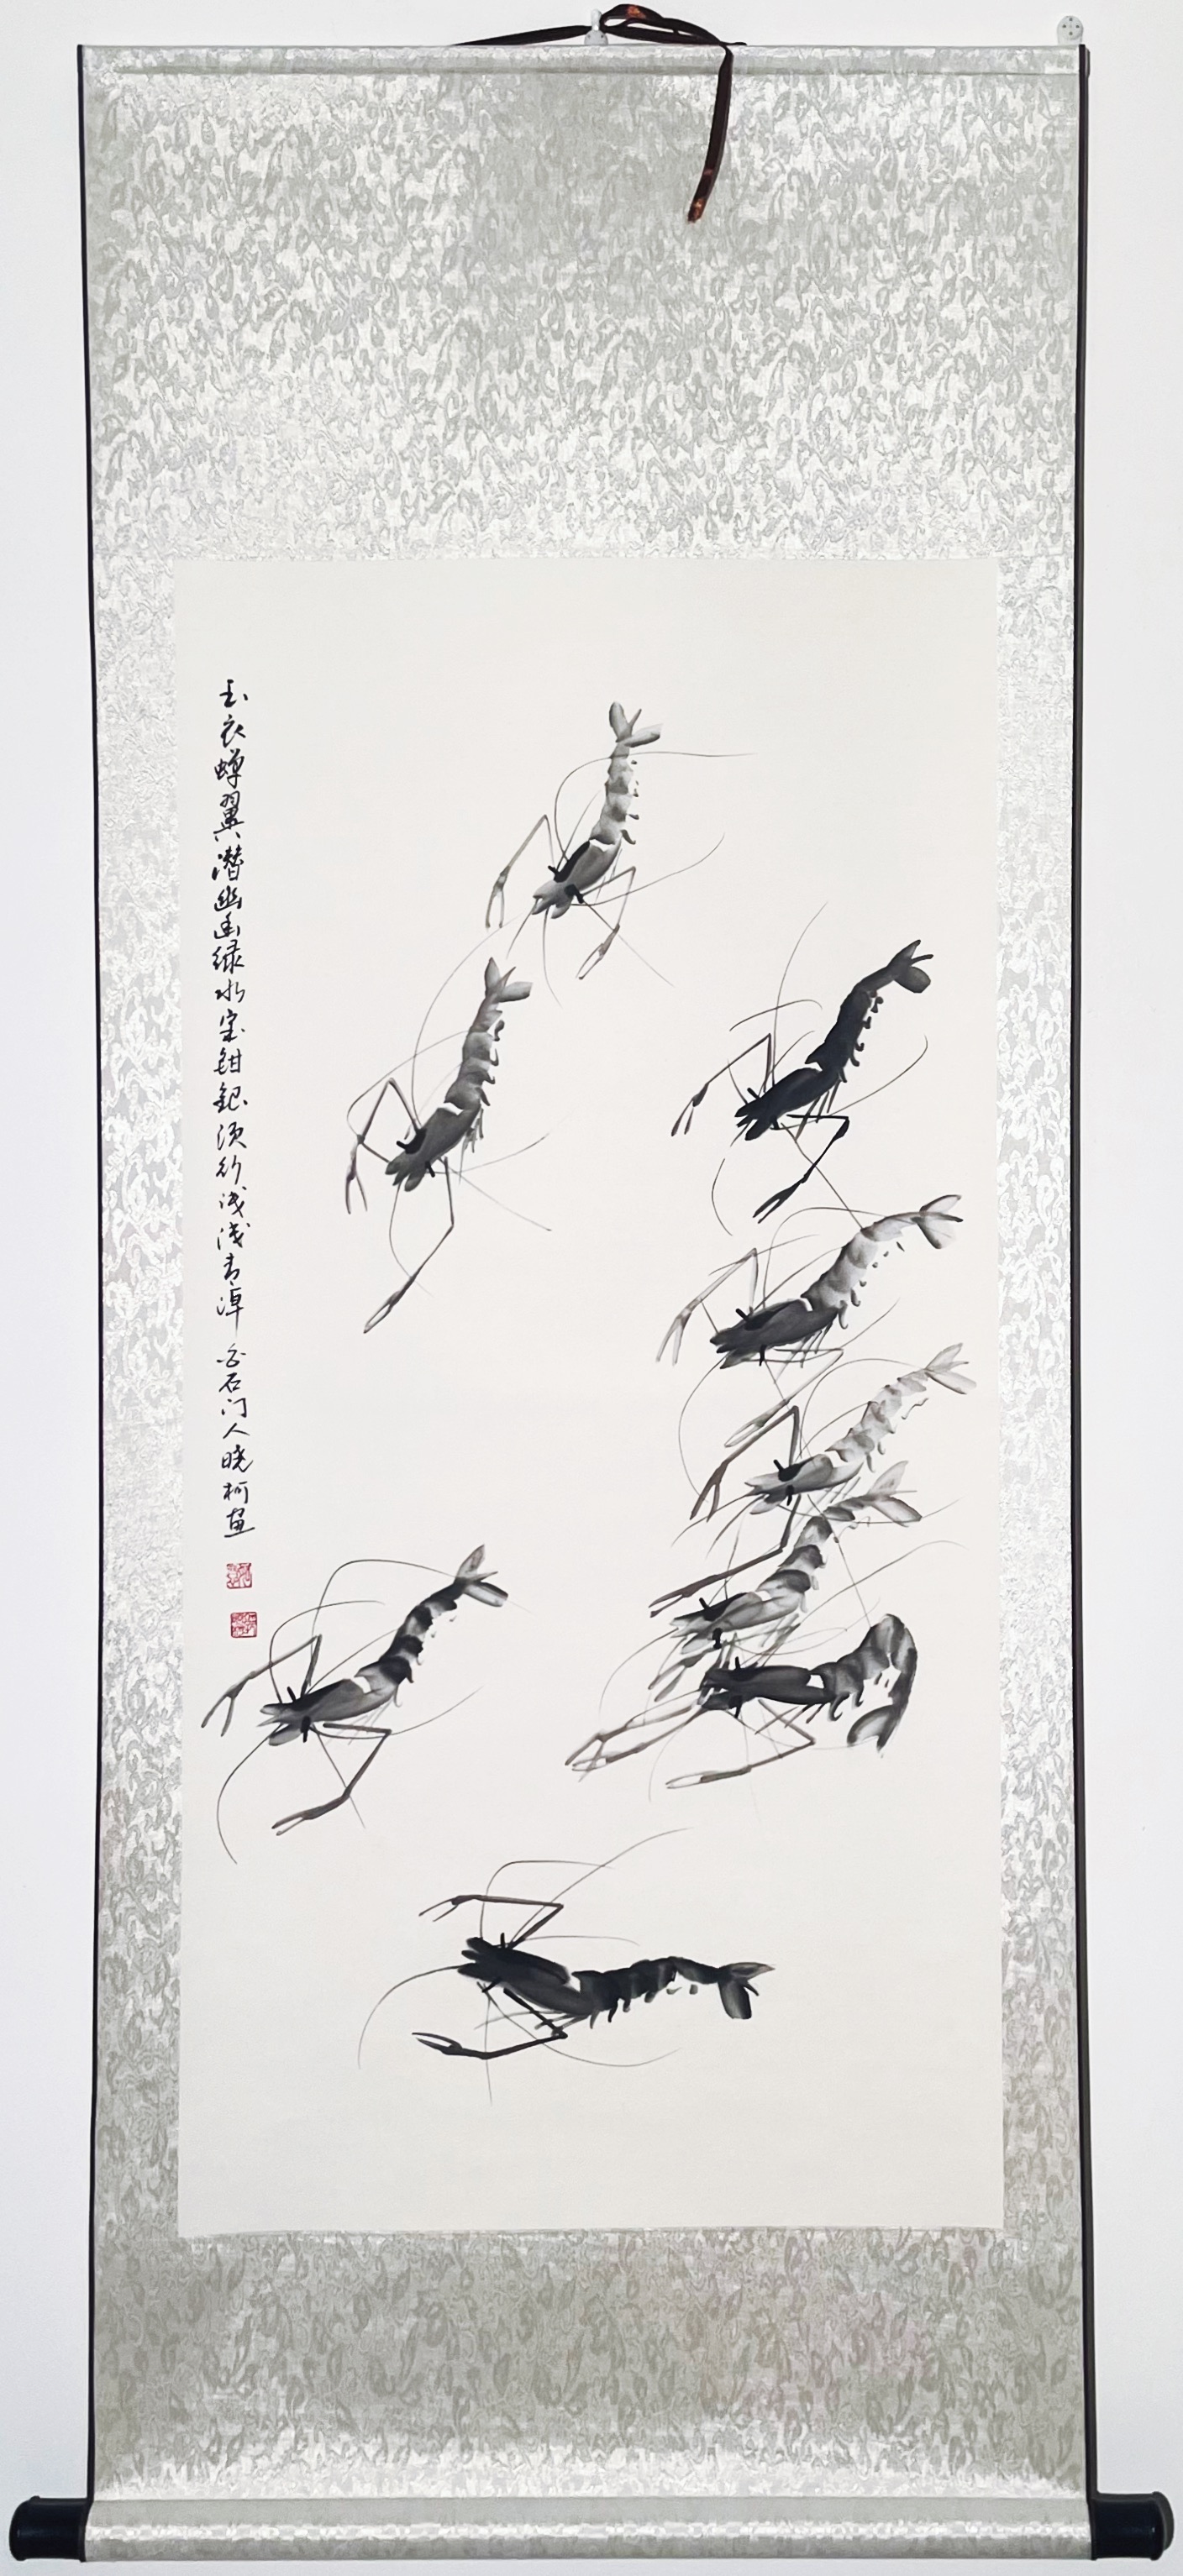 玉衣蝉翼潜幽幽绿水宝钳银须行浅浅青潭 白石门人晓柯画